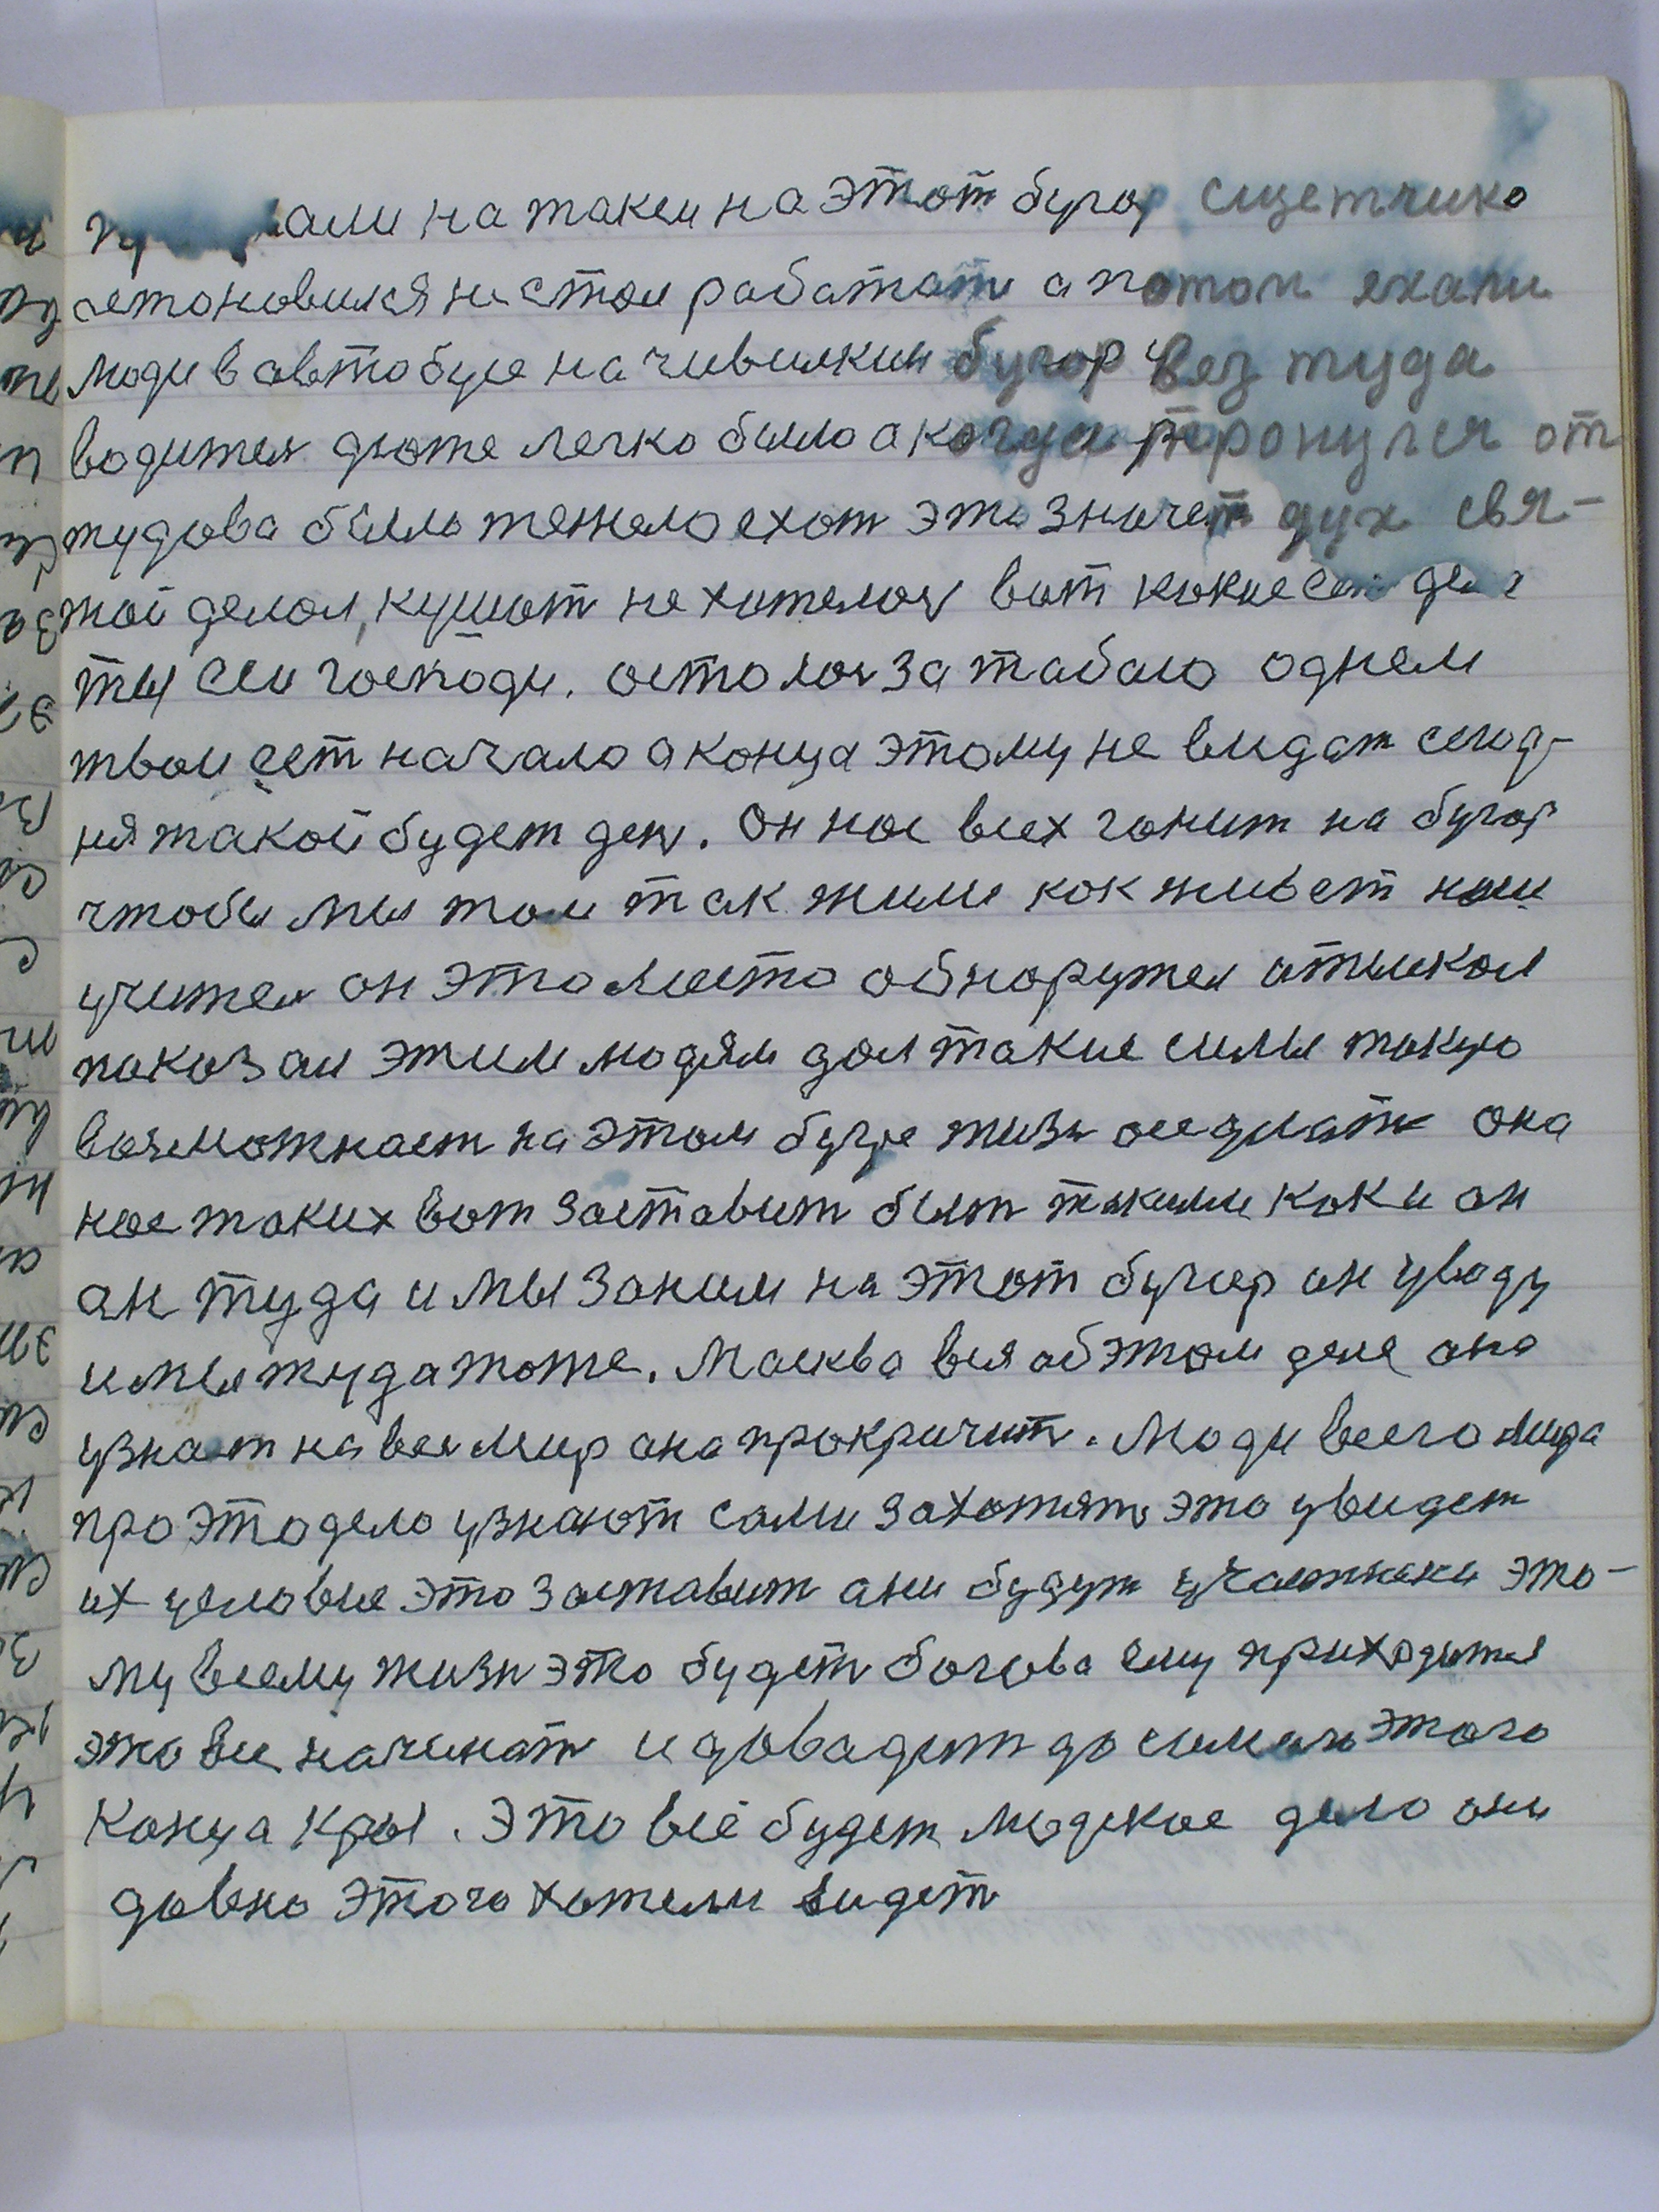 на такси на этот бугор сщетчико
астоновился нестал работать а потом ехали
люди в автобусе на чивилкин бугор вез туда
водител дюже легко было а когда тронулся от
тудова было тежело ехат это значет дух свя-
той делал, кушат не хотелос вот какие сам дела
ты сам господи. осталос за табаю однем
твои ест начало а конца этому не видат сегод-
ня такой будет ден. Он нас всех гонит на бугор
чтобы мы там так жили как живет наш
учител он это место обноружел отыскал
показал этим людям дал такие силы такую
возможнаст на этом бугре жизн оседлат она
нас таких вот заставит быт такими как и он
он туда и мы заним на этот бугор он уваду
и мы туда тоже. Масква вся об этом деле она
узнает на вес мир она прокричит. Люди всего мира
про это дело узнают сами захотят это увидет
их условие это заставит ани будут участники это-
му всему жизн это будет богова ему приходится
это все начинат и довадит до самаго этого
конца кры. Это всё будет людское дело они
давно этого хотели видет